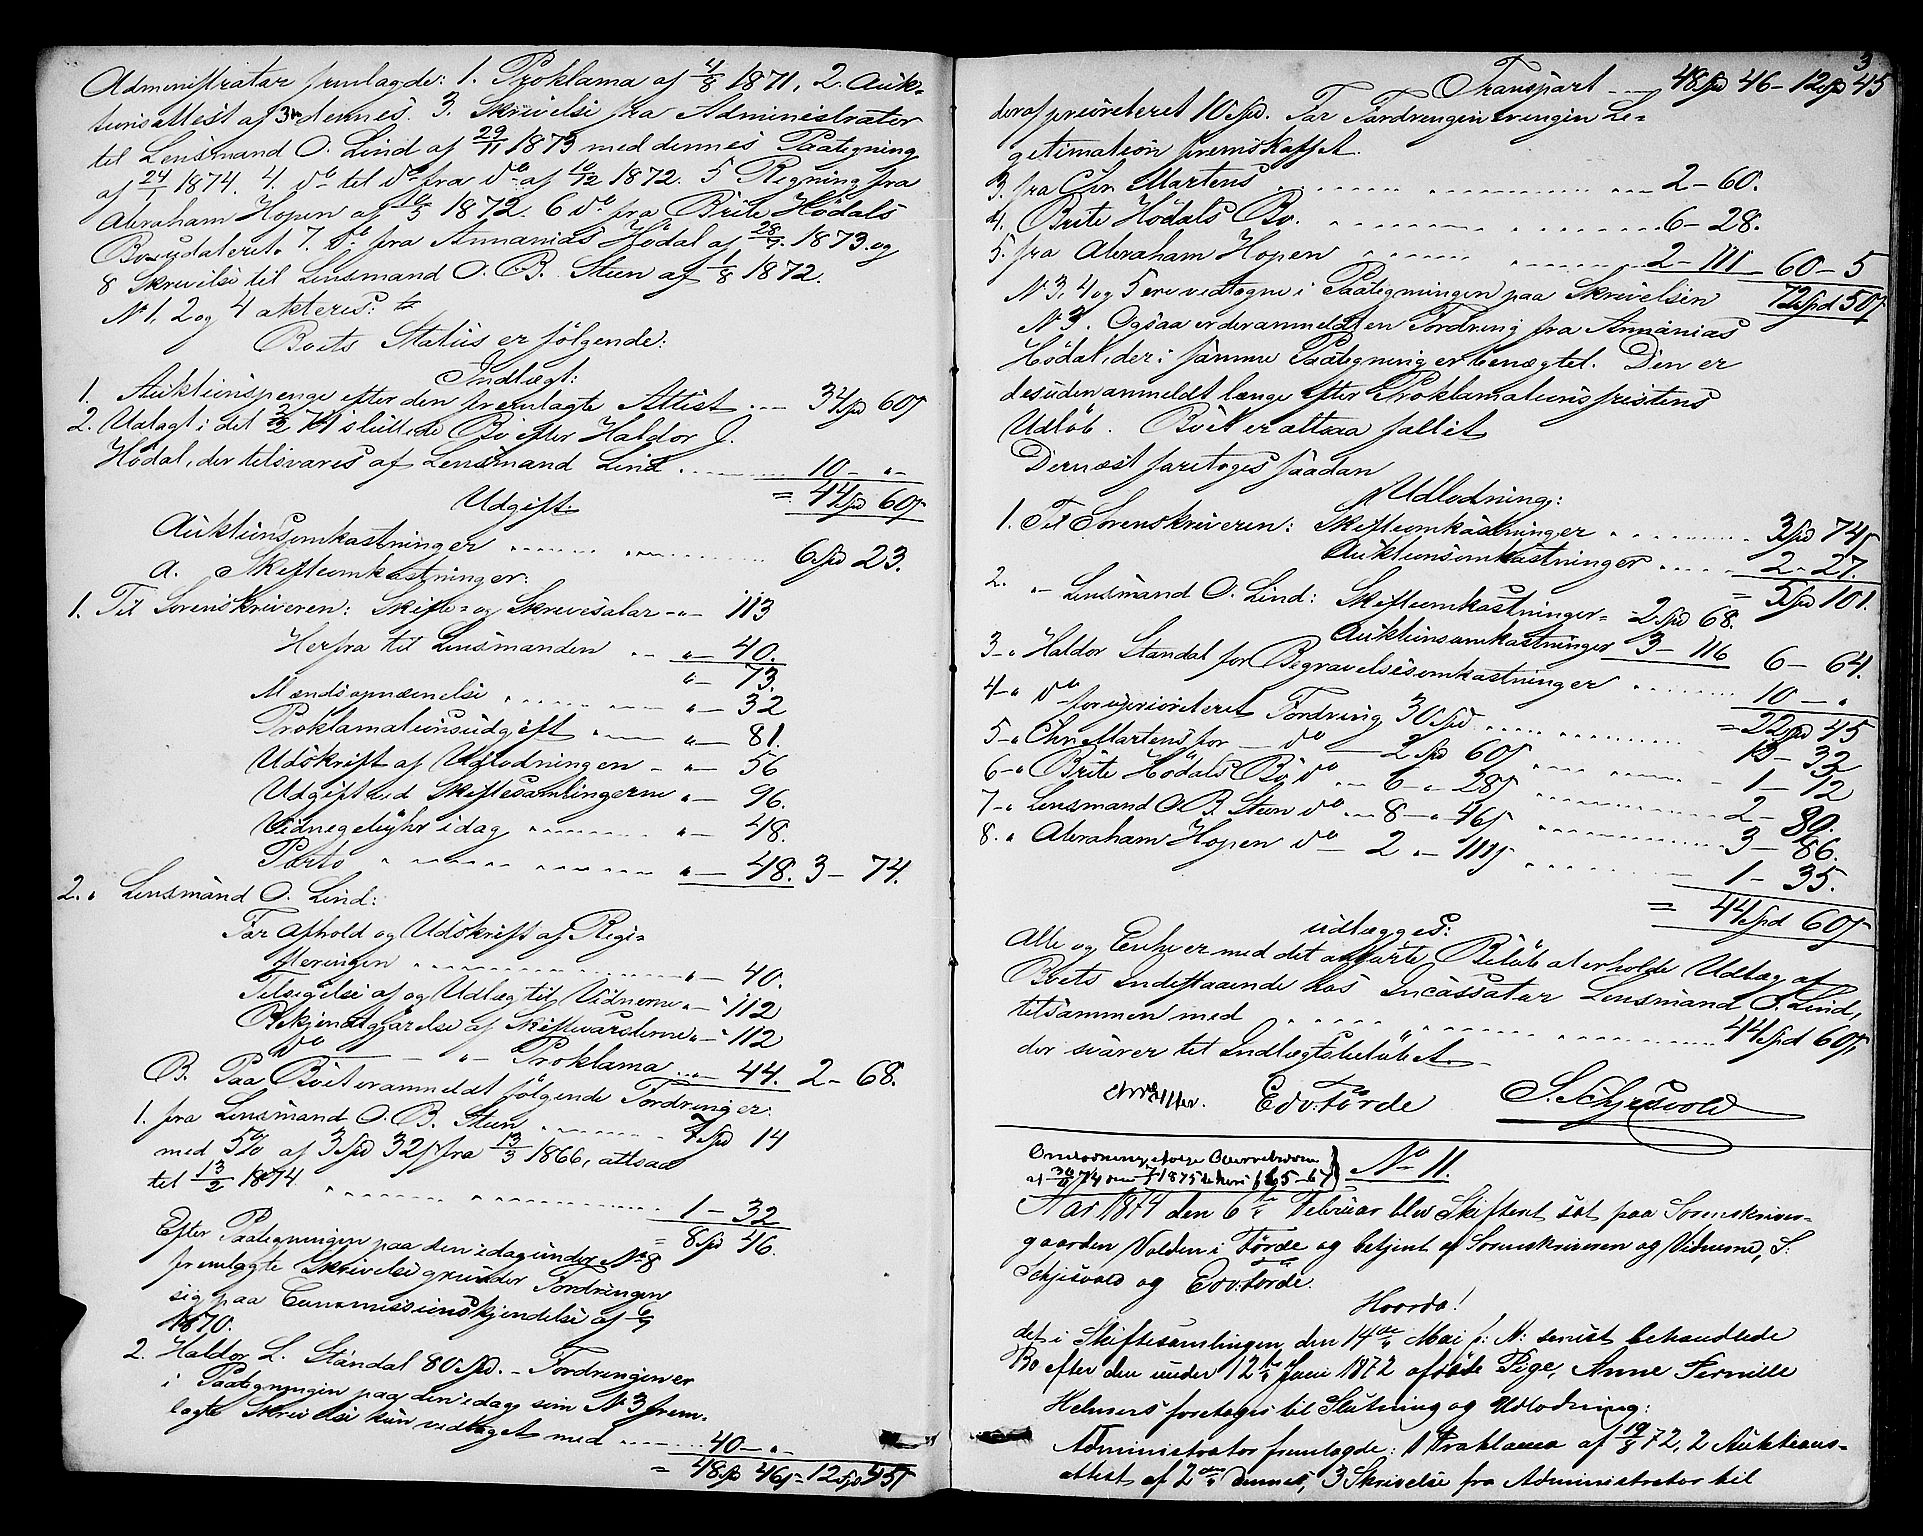 Administrator fremlagde: 1. Proklama af 4/8 1871, 2. Auk-
tionsattest af 3die dennes. 3. Skrivelse fra Administrator
til Lensmand O. Lind af 29/11 1873 med dennes Paategning
af 24/1 1874. 4. do til do fra do af 10/12 1872. 5 Regning fra
Abraham Hopen af 10/5 1872. 6 do fra Brite Hödals
Bo udateret. 7. do fra Annanias Hödal af 28/7 1873. og
8 Skrivelse til Lensmand O. B. Steen af 1/8 1872.
No 1, 2 og 4 akteres:
Boets Status er følgende:
Indtægt:
1. Auktionspenge efter den fremlagte Attest ... 34 spd 60 s
2. Udlagt i det 3/2 71 sluttede Bo efter Haldor J.
Hödal, der tilsvares af Lensmand Lind ........ 10 - " -
= 44 spd 60 s
Udgift:
Auktionsomkostninger ........ 6 spd 23.
a. Skifteomkostninger:
1. Til Sorenskriveren: Skifte- og Skrivesalar - " - 113
Herfra til Lensmanden .. " - 40.
" - 73.
Mændsopnævnelse ........ " - 32
Proklamationsudgift ..... " - 81.
Udskrift af Udlodningen - " - 56
Udgift ved Skiftesamlingerne " - 96.
Vidnegebyhr idag ........ " - 48.
Porto ........ " - 48. 3 - 74.
2. " Lensmand O. Lind:
For Afhold og Udskrift af Regi-
steringen ........ " - 40.
Tilsigelse af og Udlæg til Vidnerne " - 112
Bekjendtgjørelse af Skiftevarslerne " - 112
do - " - Proklama .. " - 44. 2 - 68.
B. Paa Boet er anmeldt følgende Fordringer:
1. fra Lensmand O. B. Steen ........ 7 spd 14
med 5% af 3 spd 32 s fra 13/3 1866, altsaa
til 13/2 1874 ........ 1 - 32
= 8 spd 46.
Efter Paategningen paa den idag under No 8
fremlagte Skrivelse grunder Fordringen
sig paa Commissionskjendelse af 6/9
1870.
2. Haldor L. Standal 80 spd. - Fordringen er
i Paategningen paa den idag som No 3 frem-
lagte Skrivelse kun vedtaget med ........ 40 - " -
= 48 spd 46 s = 12 spd 45 s
3
Transport ... 48 spd 46 - 12 spd 45
deraf prioriteret 10 spd. For Fordringen er ingen Le-
getimation fremskaffet.
3. fra Chr. Martens ........ 2 - 60.
4. Brite Hödals Bo. ........ 6 - 28.
5. fra Abraham Hopen ........ 2 - 111 60 - 5
72 spd 50 s
No 3, 4 og 5 ere vedtagne i Paategningen paa Skrivelsen
No 3. Ogsaa er der anmeldt en Fordring fra Annanias
Hödal, der i samme Paategning er benægtet. Den er
desuden anmeldt længe efter Proklamationsfristens
Udløb. Boet er altsaa fallit
Dernæst foretoges saadan
Udlodning:
1. Til Sorenskriveren: Skifteomkostninger ........ 3 spd 74 s
Auktionsomkostninger ..... 2 - 27.
= 5 spd 101.
2. " - Lensmand O. Lind: Skifteomkostninger = 2 spd 68.
Auktionsomkostninger 3 - 116 6 - 64.
3 - " Haldor Standal for Begravelsesomkostninger ........ 10 - "
= 22 spd 45
4 - " do for uprioriteret Fordring 30 spd ........ 13 - 32
5 - " Chr. Martens for - do - 2 spd 60 s ........ 1 - 12
6 - " Brite Hödals Bo do - 6 - " 28 s ........ 2 - 89.
7 - " Lensmand O. B. Steen do - 8 - " 46 s ........ 3 - 86.
8. " Abraham Hopen do - 2 " - 111 s ........ 1 - 35.
= 44 spd 60 s
udlægges:
Alle og Enhver med det anførte Beløb at erholde Udlæg af
Boets Indestaaende hos Incassator Lensmand O. Lind,
tilsammen med ........ 44 spd 60 s,
der svarer til Indtægtsbeløbet.
Edv. Förde S. Schjesvold
Omlodning, ifølge Overretsdom
No 11.
Aar 1874 den 6te Februar blev Skifteret sat paa Sorenskriver-
gaarden Valden i Förde og betjent af Sorenskriveren og Vidnerne, S.
Schjesvold og Edv. Förde.
Hvorda!
det i Skiftesamlingen den 14de Mai f: A: senest behandlede
Bo efter den under 12te Juni 1872 afdøde Pige, Anne Pernille
Helmers foretoges til Slutning og Udlodning:
Administrator fremlagde: 1 Proklama af 19/8 72, 2 Auktions-
attest af 2den dennes, 3 Skrivelse fra Administrator til